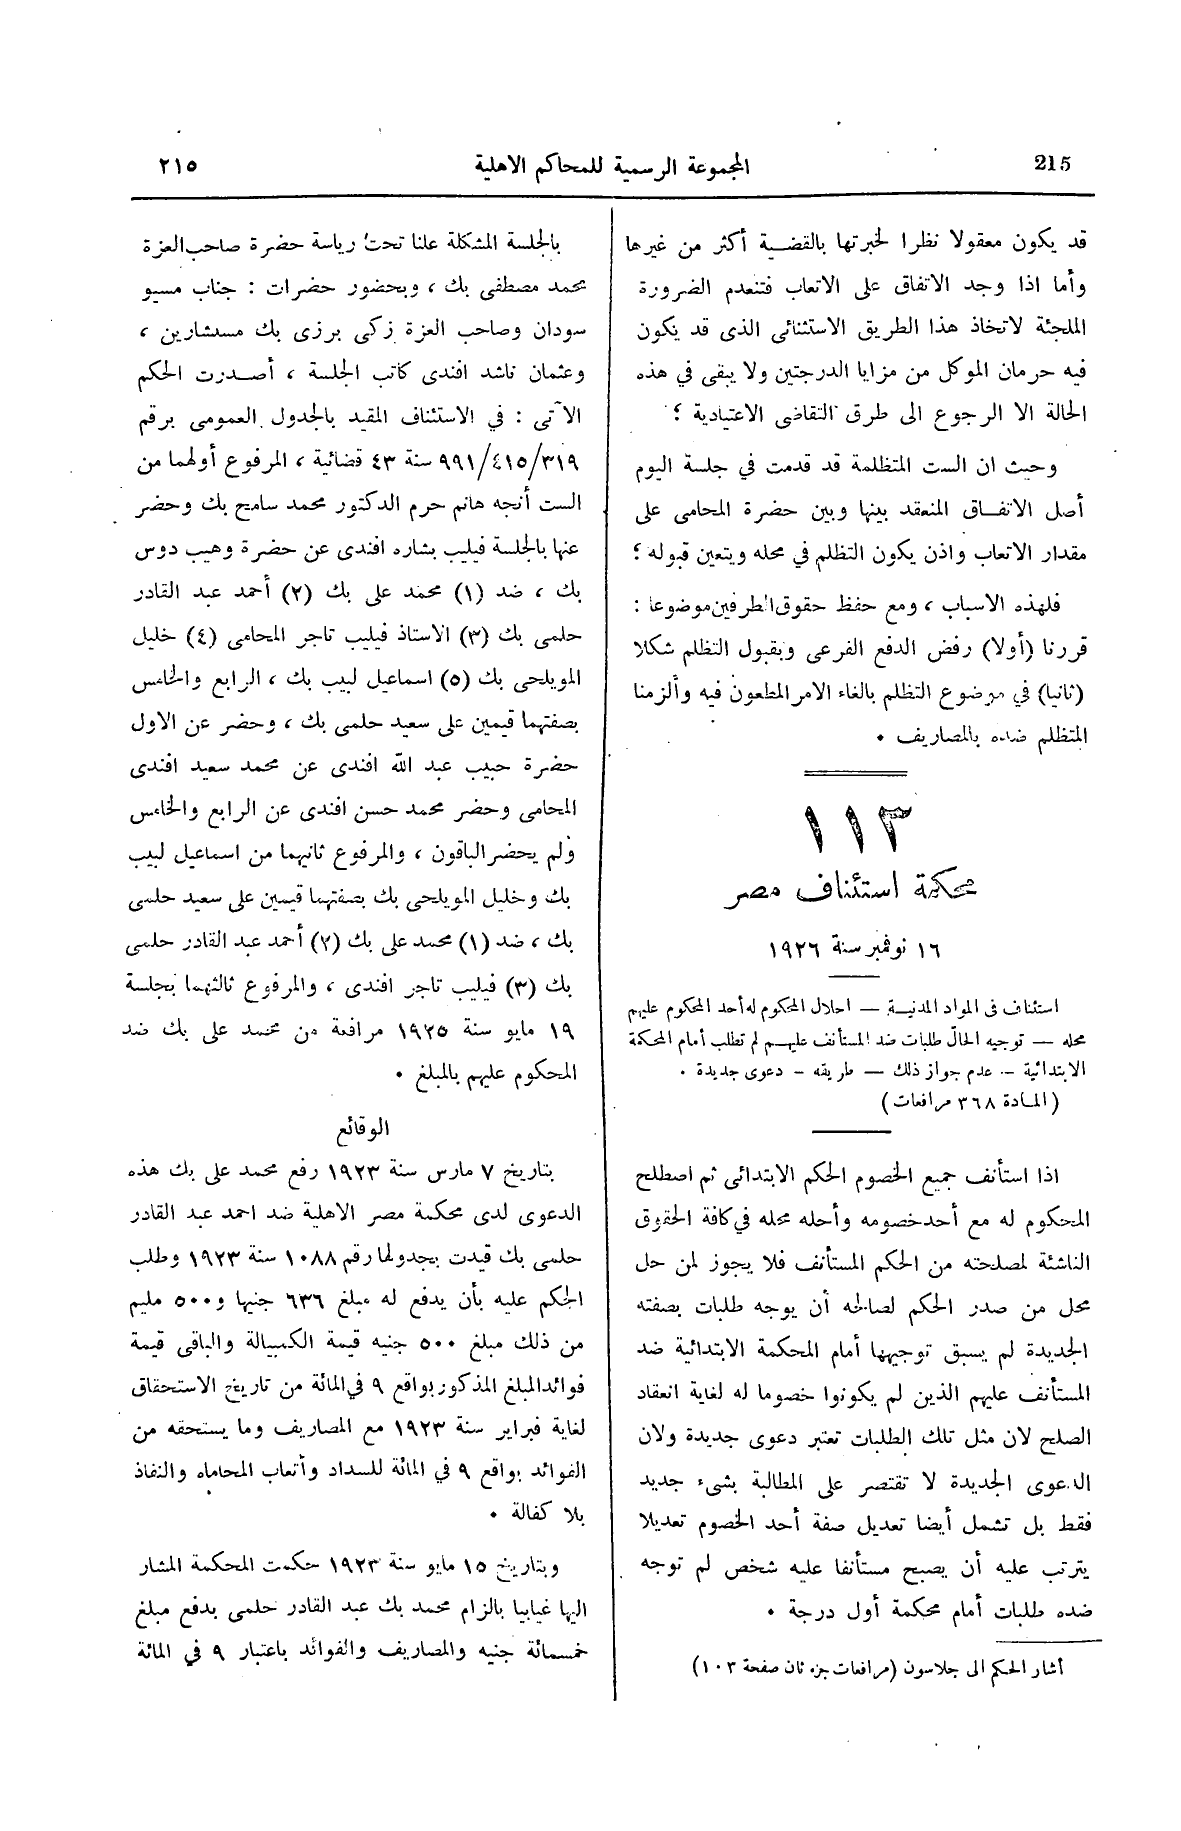 215
المجموعة الرسمية للمحاكم الاهلية
٢١٥
قد يكون معقولا نظرا لخبرتها بالقضية أكثر من غيرها
وأما اذا وجد الاتفاق على الاتعاب فتنعدم الضرورة
الملجئة لاتخاذ هذا الطريق الاستثنائى الذى قد يكون
فيه حرمان الموكل من مزايا الدرجتين ولا يبقى في هذه
الحالة الا الرجوع الى طرق التقاضى الاعتيادية ؛
وحيث ان الست المتظلمة قد قدمت في جلسة اليوم
أصل الاتفاق المنعقد بينها وبين حضرة المحامى على
مقدار الاتعاب واذن يكون التظلم في محله ويتعين قبوله ؛
فلهذه الاسباب ، ومع حفظ حقوق الطرفين موضوعا :
قررنا (أولا) رفض الدفع الفرعى وبقبول التظلم شكلا
(ثانيا) في موضوع التظلم بالغاء الامر المطعون فيه وألزمنا
المتظلم ضده بالمصاريف .
١١٣
محكمة استئناف مصر
١٦ نوفمبر سنة ١٩٢٦
استئناف فى المواد المدنية — احلال المحكوم له أحد المحكوم عليهم
محله — توجيه الحالّ طلبات ضد المستأنف عليهم لم تطلب أمام المحكمة
الابتدائية - عدم جواز ذلك — طريقه - دعوى جديدة .
(المادة ٣٦٨ مرافعات)
اذا استأنف جميع الخصوم الحكم الابتدائى ثم اصطلح
المحكوم له مع أحد خصومه وأحله محله في كافة الحقوق
الناشئة لمصلحته من الحكم المستأنف فلا يجوز لمن حل
محل من صدر الحكم لصالحه أن يوجه طلبات بصفته
الجديدة لم يسبق توجيهها أمام المحكمة الابتدائية ضد
المستأنف عليهم الذين لم يكونوا خصوما له لغاية انعقاد
الصلح لان مثل تلك الطلبات تعتبر دعوى جديدة ولان
الدعوى الجديدة لا تقتصر على المطالبة بشىء جديد
فقط بل تشمل أيضا تعديل صفة أحد الخصوم تعديلا
يترتب عليه أن يصبح مستأنفا عليه شخص لم توجه
ضده طلبات أمام محكمة أول درجة .
أشار الحكم الى جلاسون (مرافعات جزء ثان صفحة ١٠٣)
بالجلسة المشكلة علنا تحت رياسة حضرة صاحب العزة
محمد مصطفى بك ، وبحضور حضرات : جناب مسيو
سودان وصاحب العزة زكى برزى بك مستشارين ،
وعثمان ناشد افندى كاتب الجلسة ، أصدرت الحكم
الآتى : في الاستئناف المقيد بالجدول العمومى برقم
٩٩١/٤١٥/٣١٩ سنة ٤٣ قضائية ، المرفوع أولهما من
الست أنجه هانم حرم الدكتور محمد سامح بك وحضر
عنها بالجلسة فيليب بشاره افندى عن حضرة وهيب دوس
بك ، ضد (١) محمد على بك (٢) أحمد عبد القادر
حلمى بك (٣) الاستاذ فيليب تاجر المحامى (٤) خليل
المويلحى بك (٥) اسماعيل لبيب بك ، الرابع والخامس
بصفتهما قيمين على سعيد حلمى بك ، وحضر عن الاول
حضرة حبيب عبد الله افندى عن محمد سعيد افندى
المحامى وحضر محمد حسن افندى عن الرابع والخامس
ولم يحضر الباقون ، والمرفوع ثانيهما من اسماعيل لبيب
بك وخليل المويلحى بك بصفتهما قيمين على سعيد حلمى
بك ، ضد (١) محمد على بك (٢) أحمد عبد القادر حلمى
بك (٣) فيليب تاجر افندى ، والمرفوع ثالثهما بجلسة
١٩ مايو سنة ١٩٢٥ مرافعة من محمد على بك ضد
المحكوم عليهم بالمبلغ .
الوقائع
بتاريخ ٧ مارس سنة ١٩٢٣ رفع محمد على بك هذه
الدعوى لدى محكمة مصر الاهلية ضد احمد عبد القادر
حلمى بك قيدت بجدولها رقم ١٠٨٨ سنة ١٩٢٣ وطلب
الحكم عليه بأن يدفع له مبلغ ٦٣٦ جنيها و٥٠٠ مليم
من ذلك مبلغ ٥٠٠ جنيه قيمة الكمبيالة والباقى قيمة
فوائد المبلغ المذكور بواقع ٩ في المائة من تاريخ الاستحقاق
لغاية فبراير سنة ١٩٢٣ مع المصاريف وما يستحقه من
الفوائد بواقع ٩ في المائة للسداد وأتعاب المحاماه والنفاذ
بلا كفالة .
وبتاريخ ١٥ مايو سنة ١٩٢٣ حكمت المحكمة المشار
اليها غيابيا بالزام محمد بك عبد القادر حلمى بدفع مبلغ
خمسمائة جنيه والمصاريف والفوائد باعتبار ٩ في المائة